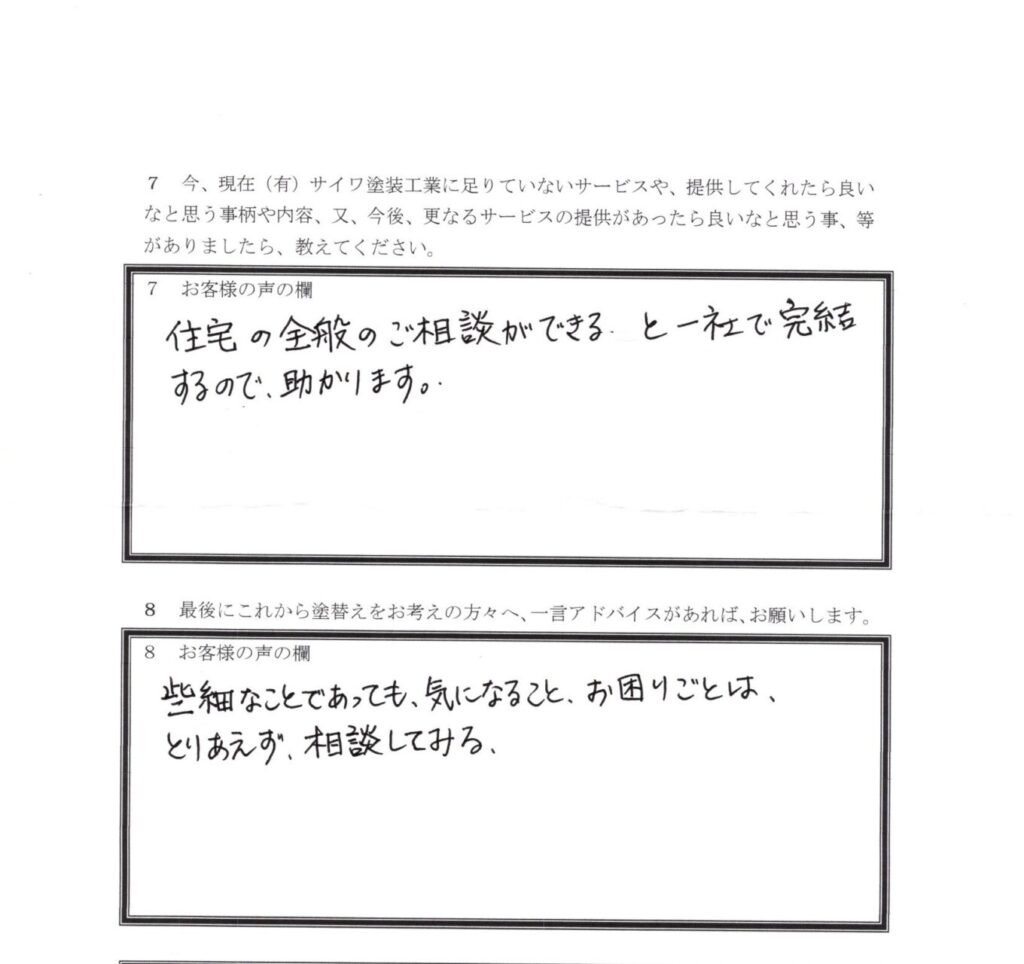 7 今、現在（有）サイワ塗装工業に足りていないサービスや、提供してくれたら良い
なと思う事柄や内容、又、今後、更なるサービスの提供があったら良いなと思う事、等
がありましたら、教えてください。
7 お客様の声の欄
住宅の全般のご相談ができると一社で完結
するので、助かります。
8 最後にこれから塗替えをお考えの方々へ、一言アドバイスがあれば、お願いします。
8 お客様の声の欄
些細なことであっても、気になること、お困りごとは、
とりあえず、相談してみる、